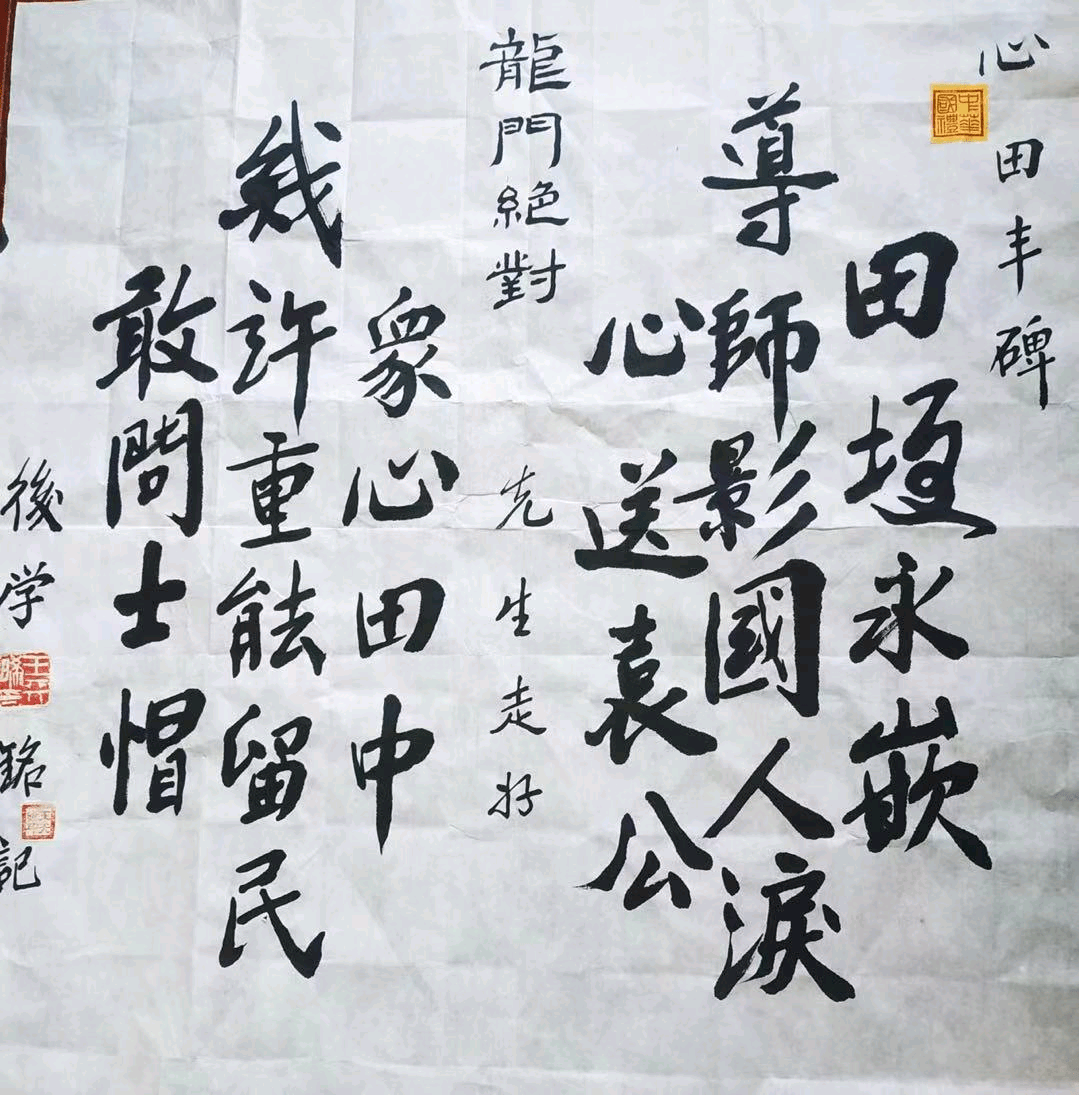 心田丰碑
中華國禮
田埂永嵌
導師影國人淚
心送袁公
龍門絕對
先生走好
衆心田中
幾許重能留民
敢問士帽
後学
銘記